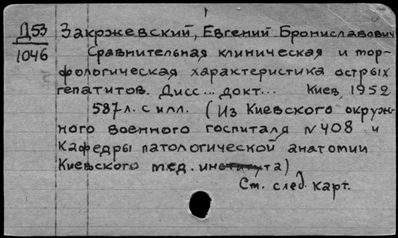 Д53 Закржевский, Евгений Брониславович
1046 Сравнительная клиническая и мор-
фологическая характеристика острых
гепатитов. Дисс... докт... Киев, 1952
587 л. с илл. (Из Киевского окруж-
ного военного госпиталя N 408 и
Кафедры патологической анатомии
Киевского мед. института)
См. след. карт.